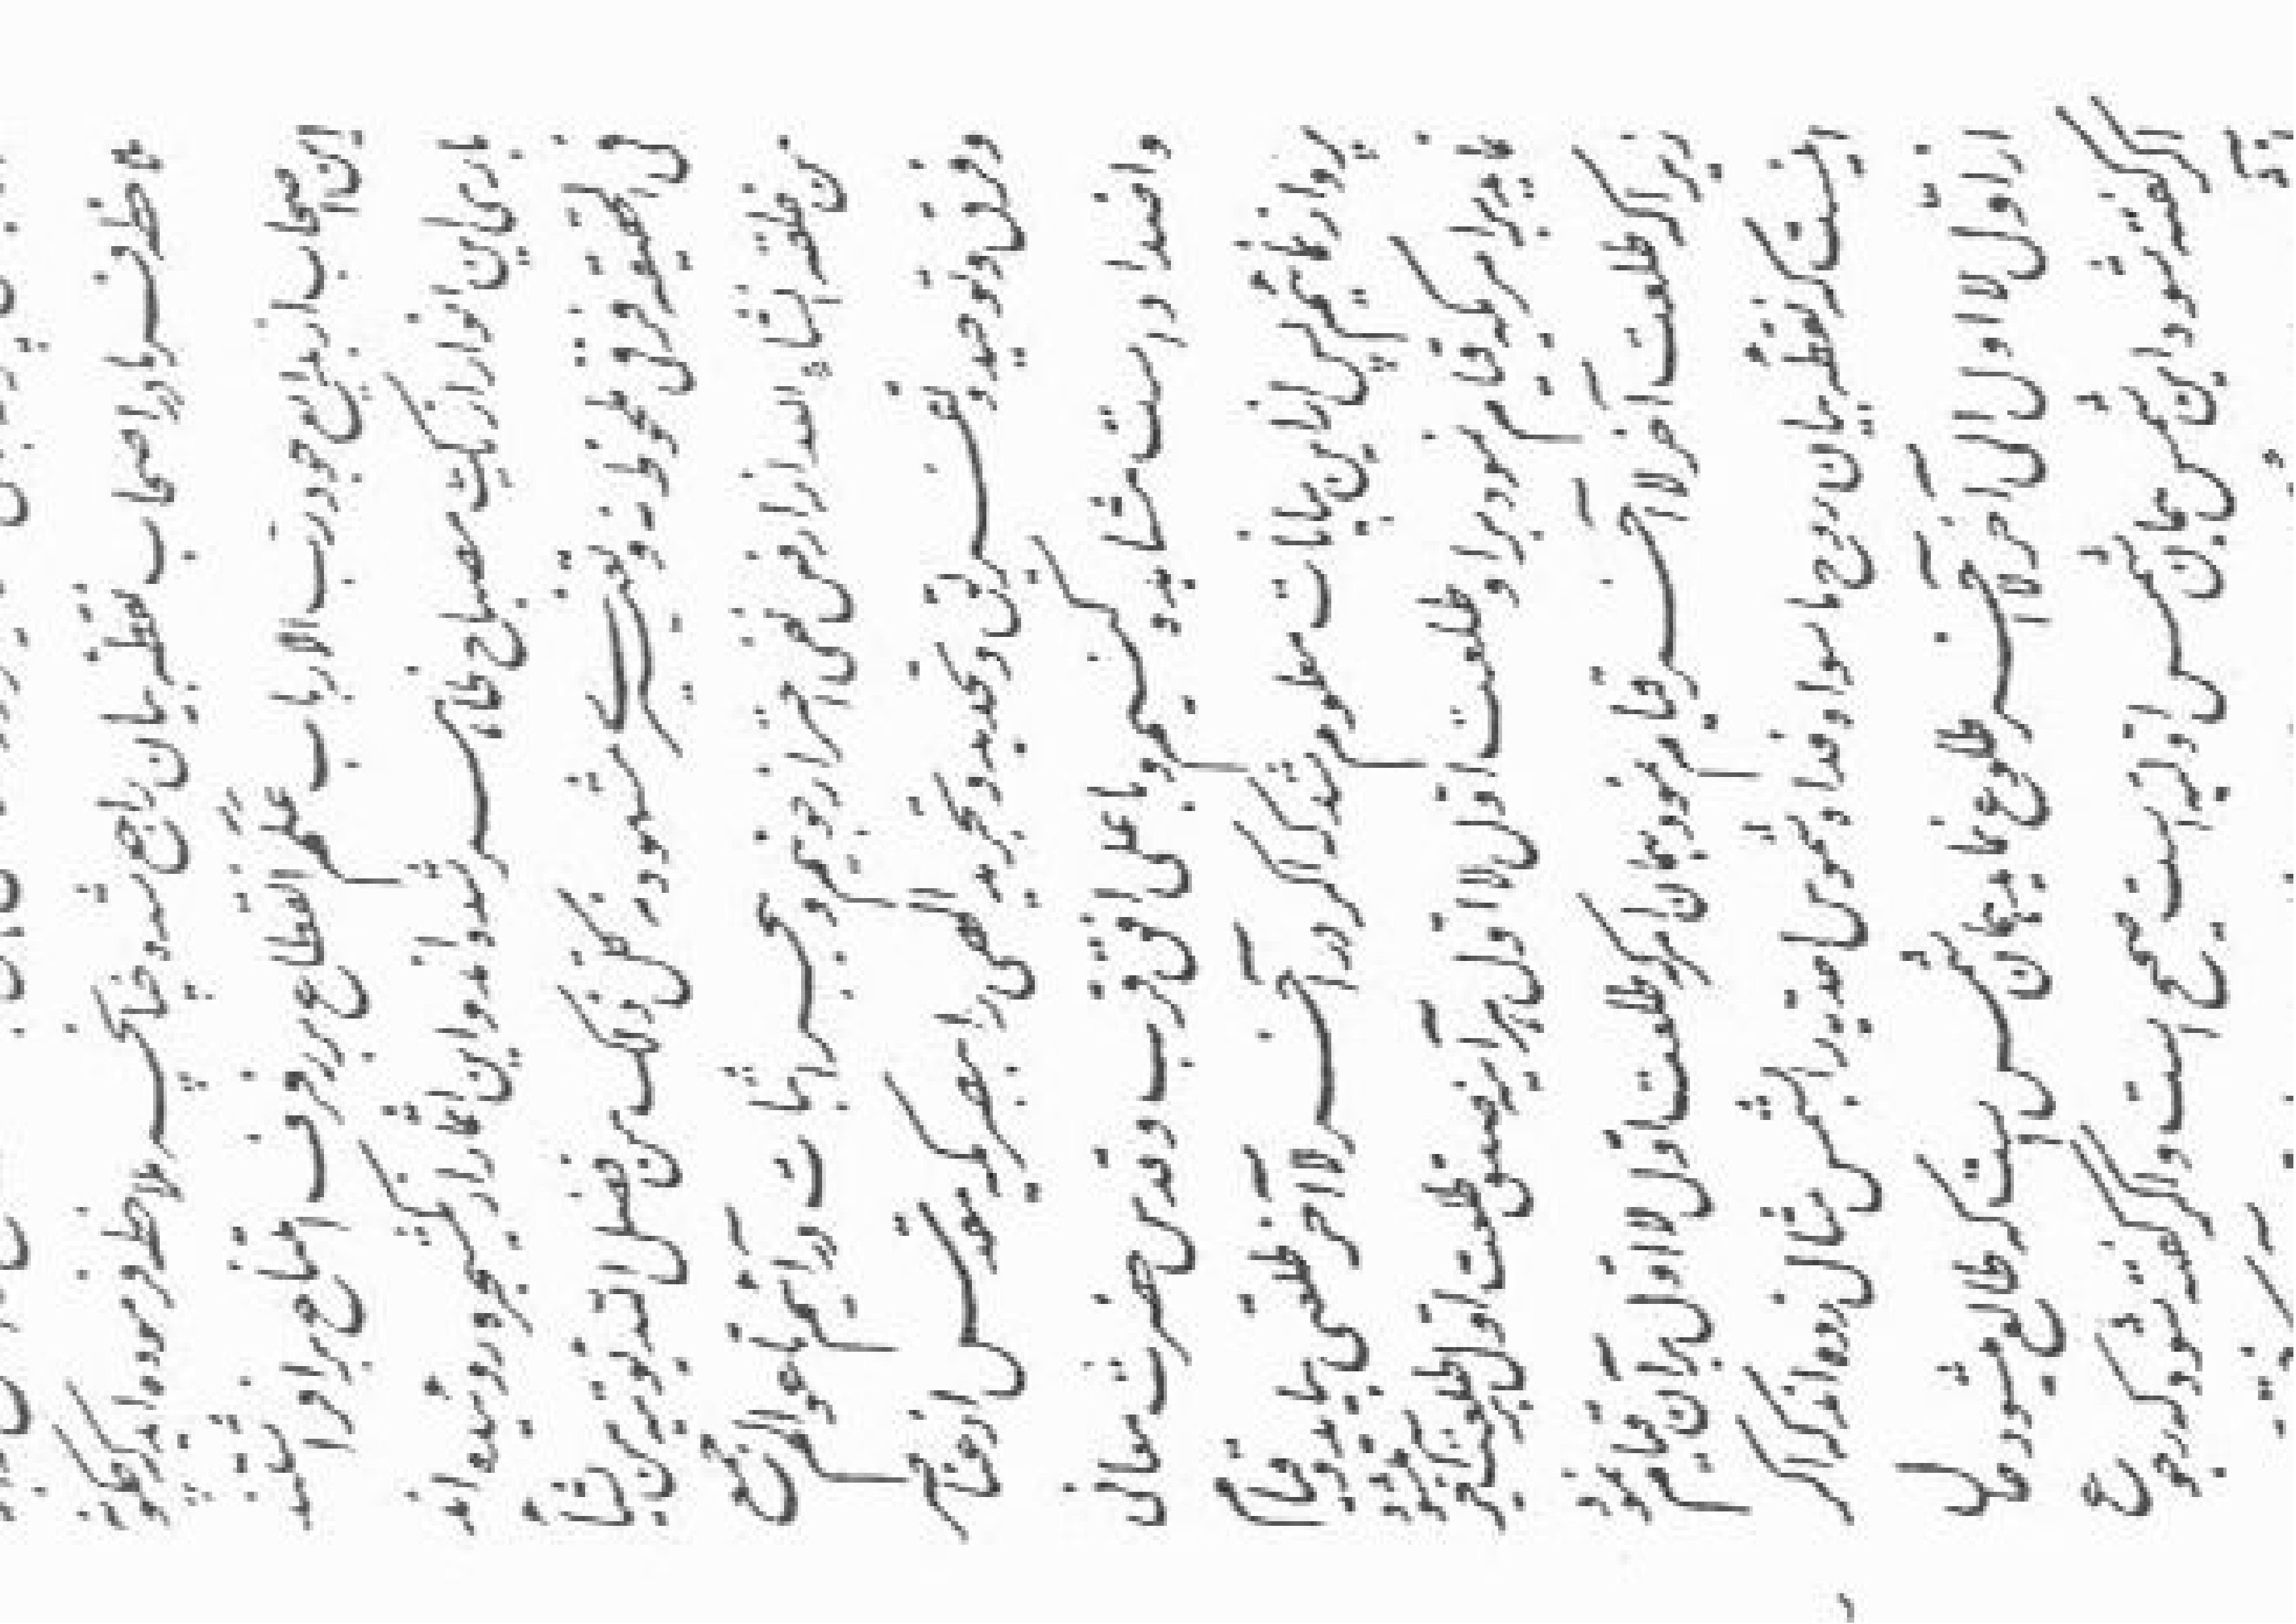 ع ظرف مارا اصحاب نقطه بیان راجع شد و چنانچه ملاحظه فرموده اند که نقطه
این اصحاب از بدایع جود رب الارباب علم انقطاع بر رفرف امتناع برافراشتند
باری این انوار از یک مصباح ظاهر شده اند و این اثمار از یک شجره روئیده اند
فی الحقیقه فرقی ملحوظ نه و تغییری مشهود نه کل ذلک من فضل الله یؤتیه من یشآء
من خلقه انشاءالله از ارض نفی احتراز جوئیم و ببحر اثبات درآئیم تا عوالم جمع
و فرق و توحید و تفریق و تحدید و تجرید الهی را ببصریکه مقدس از عناصر
و اضداد است مشاهده کنیم و باعلی افق قرب و قدس حضرت معانی
پرواز نمائیم پس از این بیانات معلوم شد که اگر در آخر لا آخر طلعتی بیاید و قیام
نماید بر امریکه قیام نمود بر او طلعت اول لا اول هر آینه صدق طلعت اول بر طلعت آخر میشود
زیرا که طلعت آخر لا آخر قیام نمود بهمان امر که طلعت اول لا اول بر آن قیام نمود
اینست که نقطه بیان روح ما سواه فداه شموس احدیه را بشمس مثال زده اند که اگر
از اول لا اول الی آخر لا آخر طلوع نماید همان شمس است که طالع میشود حال
اگر گفته شود این شمس همان شمس اولیه است صحیح است و اگر گفته شود که رجوع